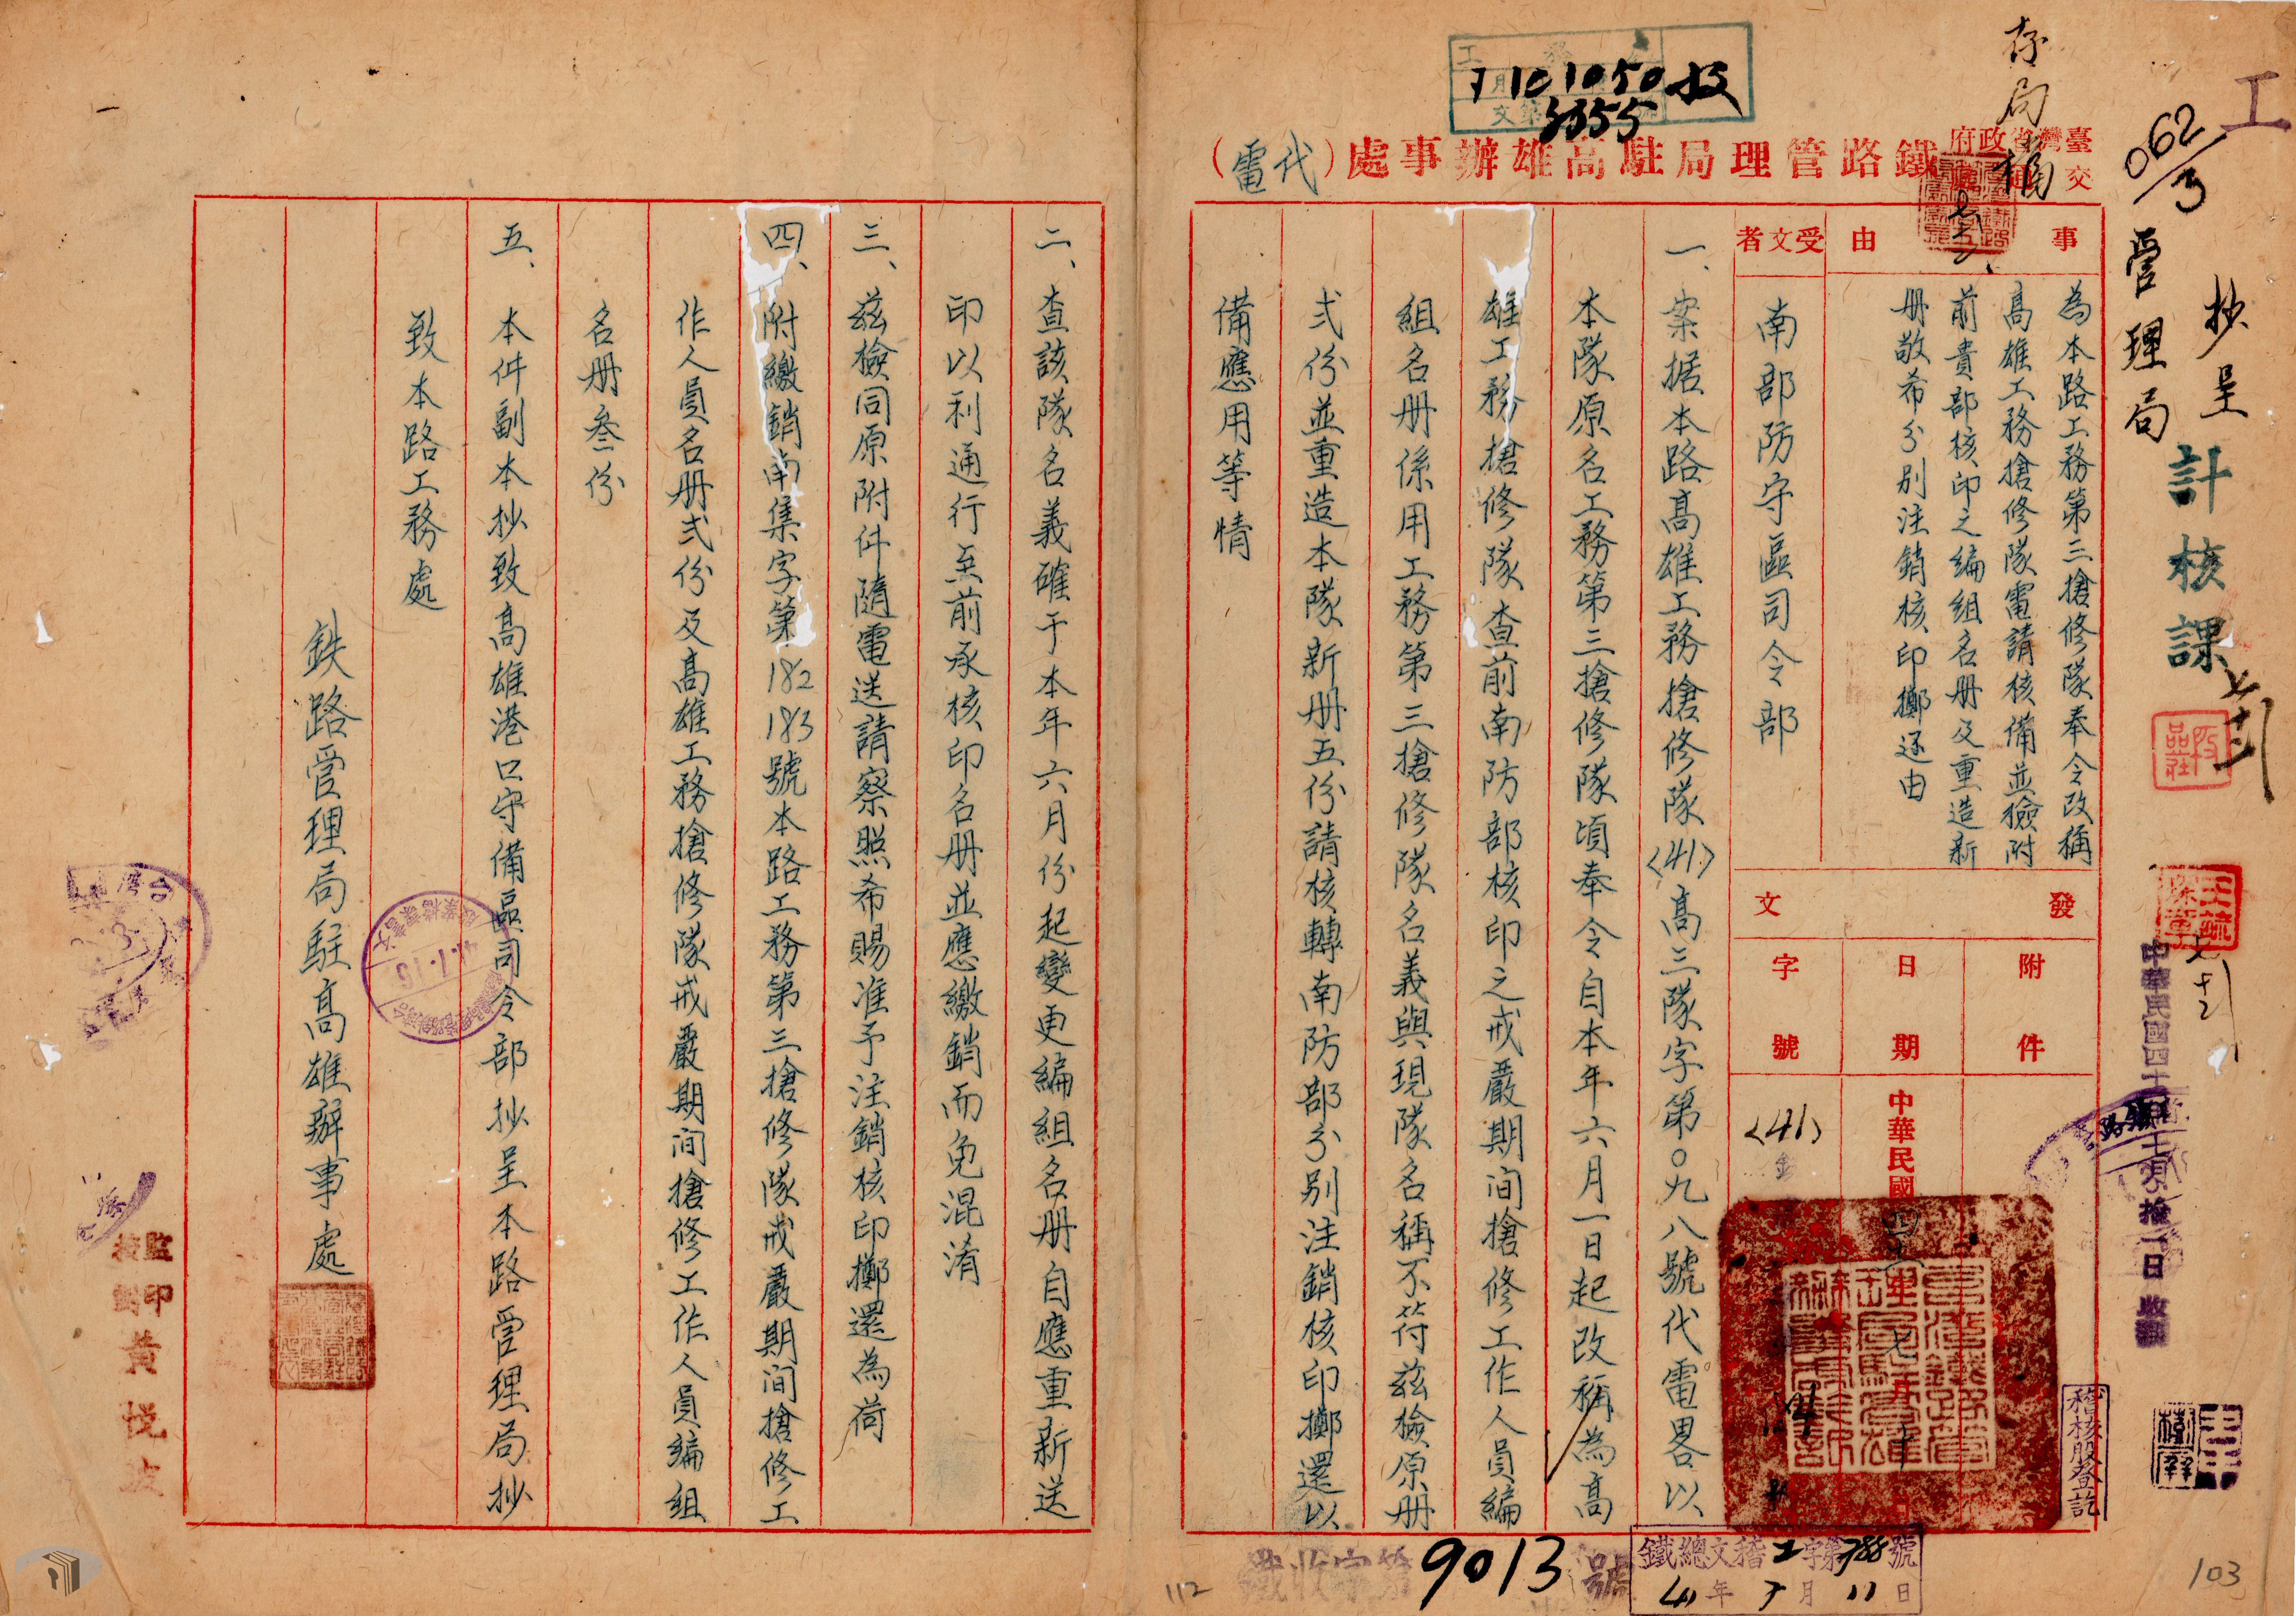 工
062/3
抄呈
管理局
計核課
存局
1050
3355
臺灣省政府交通處鐵路管理局駐高雄辦事處（代電）
事由
為本路工務第三搶修隊奉令改稱
高雄工務搶修隊電請核備並檢附
前貴部核印之編組名册及重造新
册敬希分别注銷核印擲还由
受文者
南部防守區司令部
發文
附件
日期
中華民國四十一年七月十日
字號
〈41〉
一、案据本路高雄工務搶修隊〈41〉高三隊字第〇九八號代電畧以
本隊原名工務第三搶修隊頃奉令自本年六月一日起改稱為高
雄工務搶修隊查前南防部核印之戒嚴期间搶修工作人員編
組名册係用工務第三搶修隊名義與現隊名稱不符兹檢原册
弍份並重造本隊新册五份請核轉南防部分别注銷核印擲還以
備應用等情
二、查該隊名義確于本年六月份起變更編組名册自應重新送
印以利通行至前承核印名册並應繳銷而免混淆
三、兹檢同原附件隨電送請察照希賜准予注銷核印擲還為荷
四、附繳銷南集字第182 183號本路工務第三搶修隊戒嚴期间搶修工
作人員名册弍份及高雄工務搶修隊戒嚴期间搶修工作人員編組
名册叁份
五、本件副本抄致高雄港口守備區司令部抄呈本路管理局抄
致本路工務處
鉄路管理局駐高雄辦事處
監印
校對
黃悦
41.7.16
中華民國四十一年七月拾一日 收
稽核股登記
鐵收字第9013號
鐵總文稽工字第788號
41年7月11日
112
103